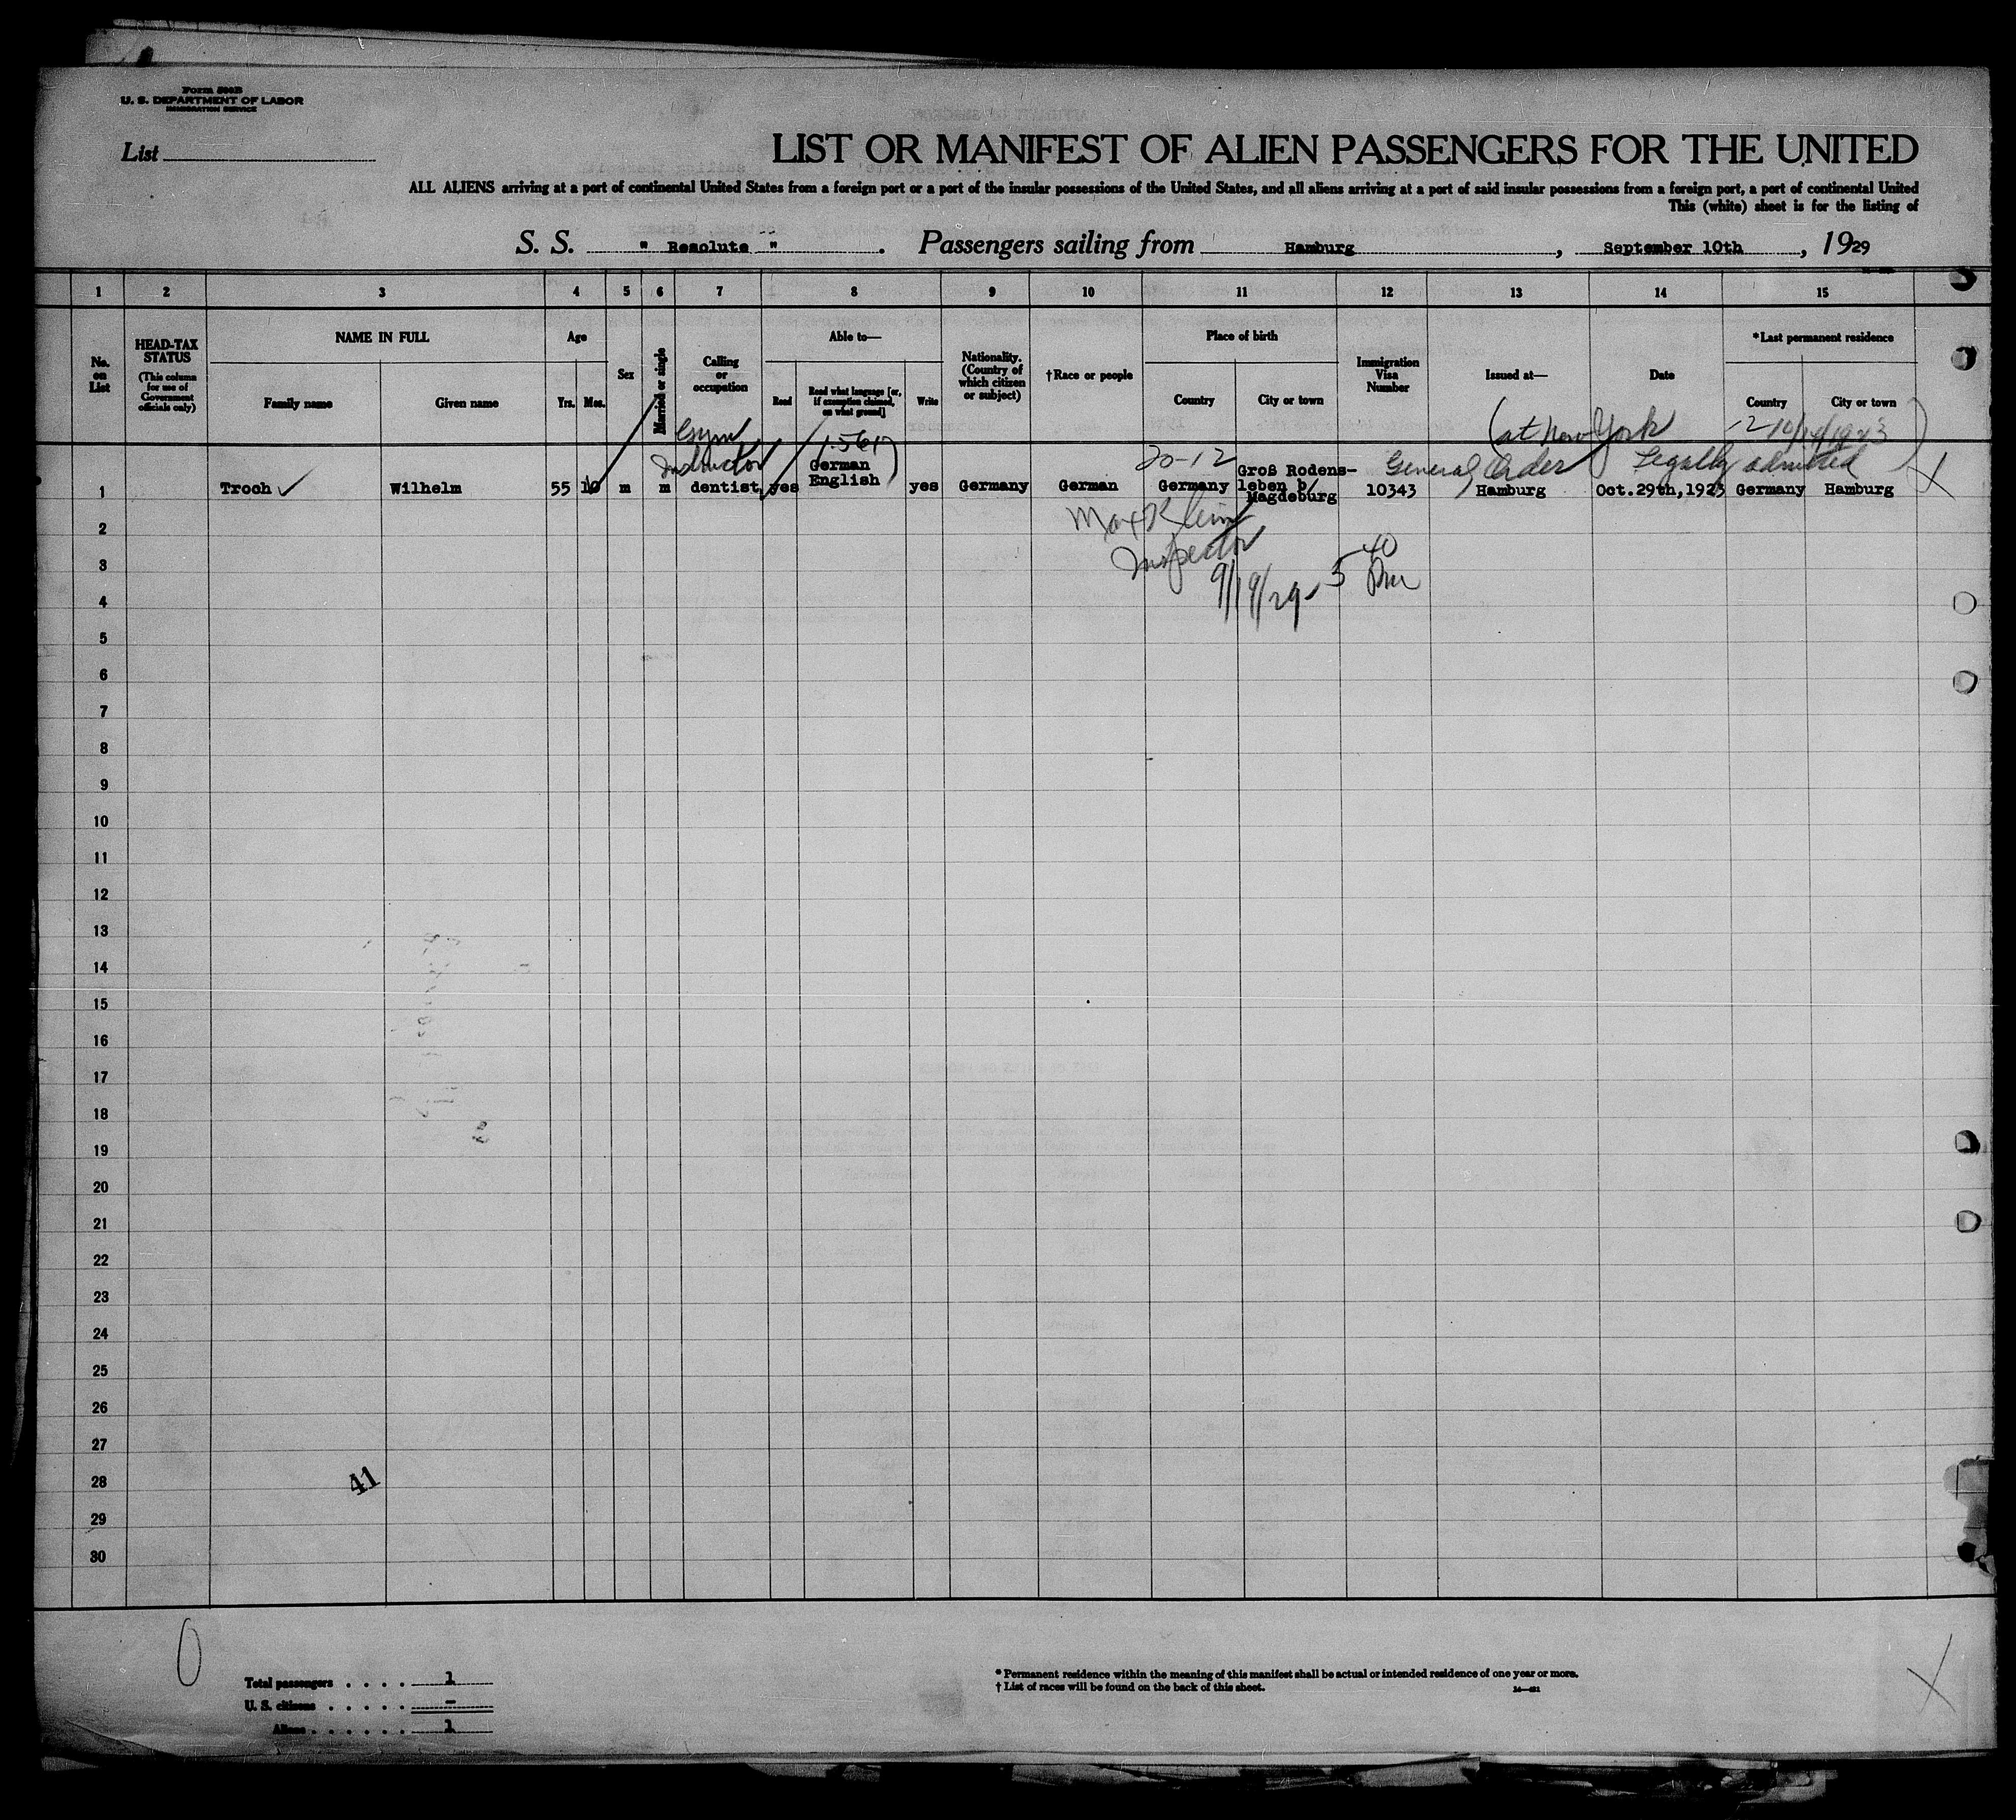 Form 500B
U. S. DEPARTMENT OF LABOR
IMMIGRATION SERVICE
List
LIST OR MANIFEST OF ALIEN PASSENGERS FOR THE UNITED
ALL ALIENS arriving at a port of continental United States from a foreign port or a port of the insular possessions of the United States, and all aliens arriving at a port of said insular possessions from a foreign port, a port of continental United
This (white) sheet is for the listing of
S. S. " Resolute ". Passengers sailing from Hamburg, September 10th, 1929
1 2 3 4 5 6 7 8 9 10 11 12 13 14 15
No. on List
HEAD-TAX STATUS (This column for use of Government officials only)
NAME IN FULL
Family name Given name
Age
Yrs. Mos.
Sex
Married or single
Calling or occupation
Able to—
Read Read what language [or, if exemption claimed, on what ground] Write
Nationality. (Country of which citizen or subject)
†Race or people
Place of birth
Country City or town
Immigration Visa Number
Issued at—
Date
*Last permanent residence
Country City or town
(at New York
Gym
Instructor
20-12
General Order
Legally admitted
1 Troch Wilhelm 55 10 m m dentist yes German English yes Germany German Germany Groß Rodens-leben b/ Magdeburg 10343 Hamburg Oct.29th,1923 Germany Hamburg
Max Klein
Inspector
9/19/29 5 40 Pm
2
3
4
5
6
7
8
9
10
11
12
13
14
15
16
17
18
19
20
21
22
23
24
25
26
27
28
29
30
41
Total passengers . . . . 1
U. S. citizens . . . . . –
Aliens . . . . . . 1
* Permanent residence within the meaning of this manifest shall be actual or intended residence of one year or more.
† List of races will be found on the back of this sheet.